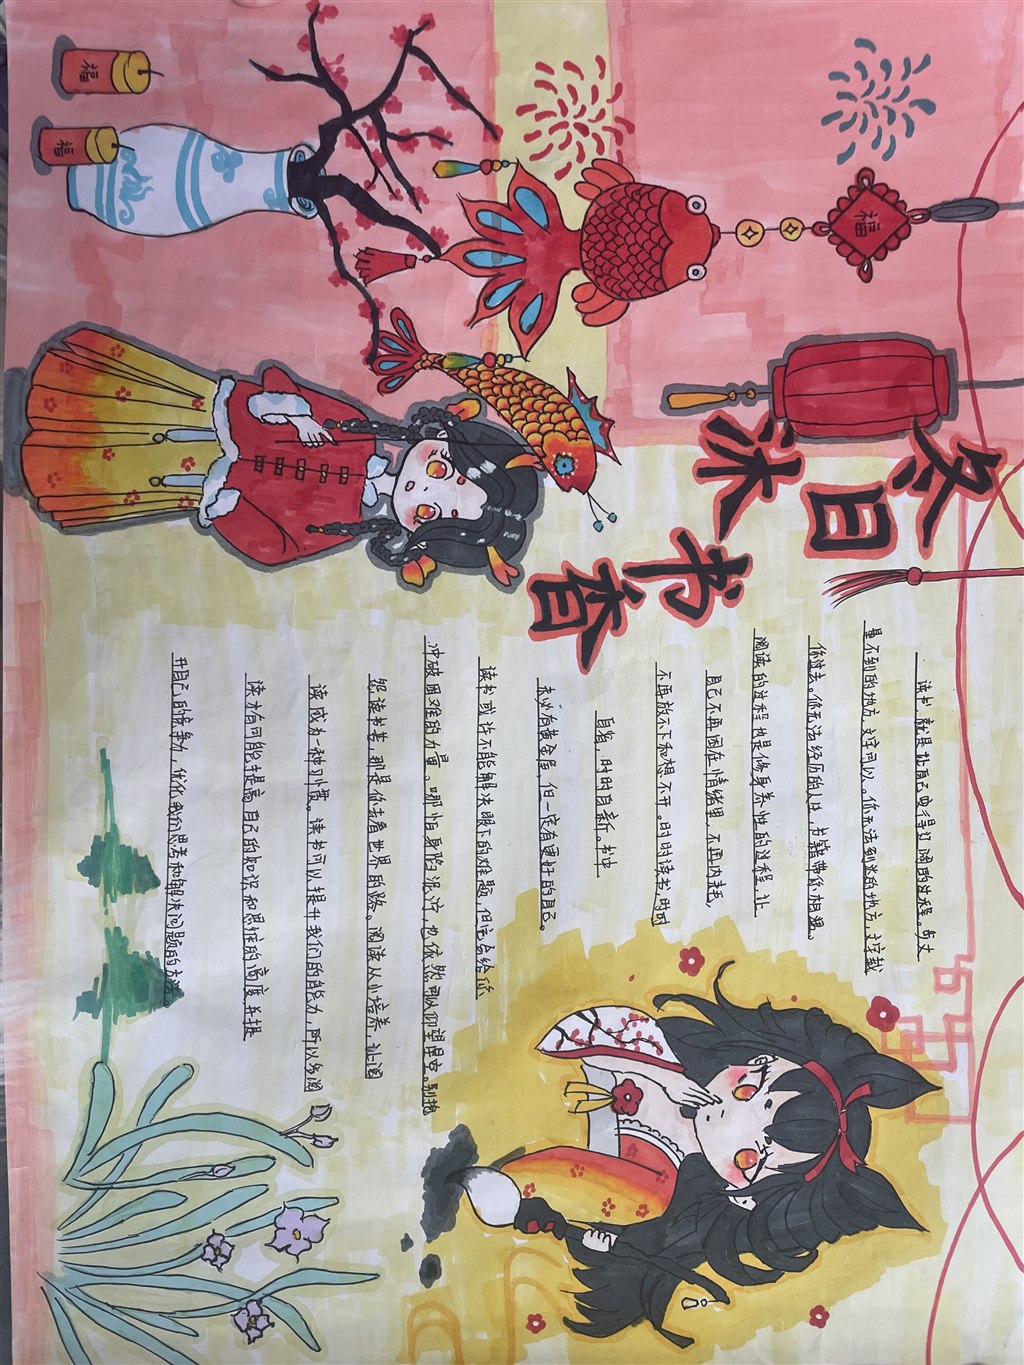 福
福
福
冬日
沐
书
香
读书，就是让自己变得辽阔的过程。脚丈
量不到的地方，文字可以。你无法到达的地方，文字载
你过去。你无法经历的人生，书籍带你相遇。
阅读的过程也是修身养性的过程，让
自己不再困在情绪里，不再内耗，
不再放不下和想不开。时时读书，时时
自省，时时自新。书中
未必有黄金屋，但一定有更好的自己。
读书或许不能解决眼下的难题，但它会给你
冲破困难的力量。哪怕身陷泥泞，也依然可以仰望星空。别抱
怨读书苦，那是你去看世界的路。阅读从小培养，让阅
读成为一种习惯。读书可以提升我们的能力，所以多阅
读才有可能提高自己的知识和思维的高度，并提
升自己的竞争力，优化我们思考和解决问题的方法。